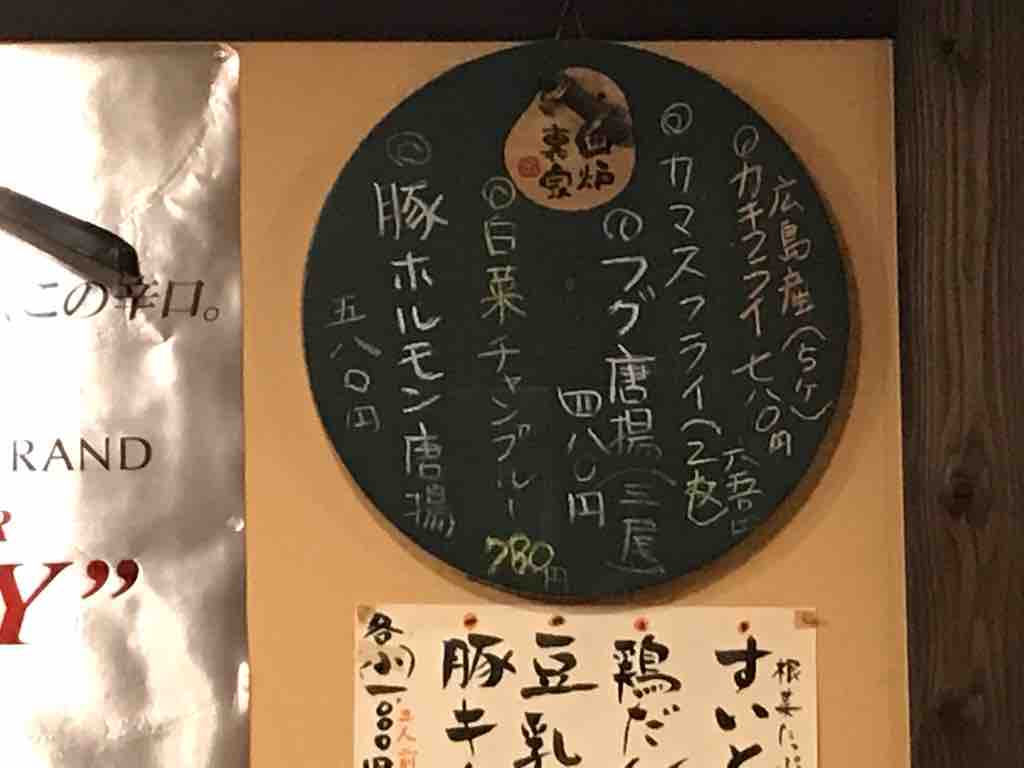 広島産(5ケ)
カキフライ 七八〇円
カマスフライ(2枚)
フグ唐揚(三尾)
四八〇円
白菜チャンプルー
780円
豚ホルモン唐揚
五八〇円
囲炉
裏家
この辛口。
RAND
R
Y”
根菜たっぷ
すいと
鶏だ
豆乳
豚キ
各(小)一
二人前